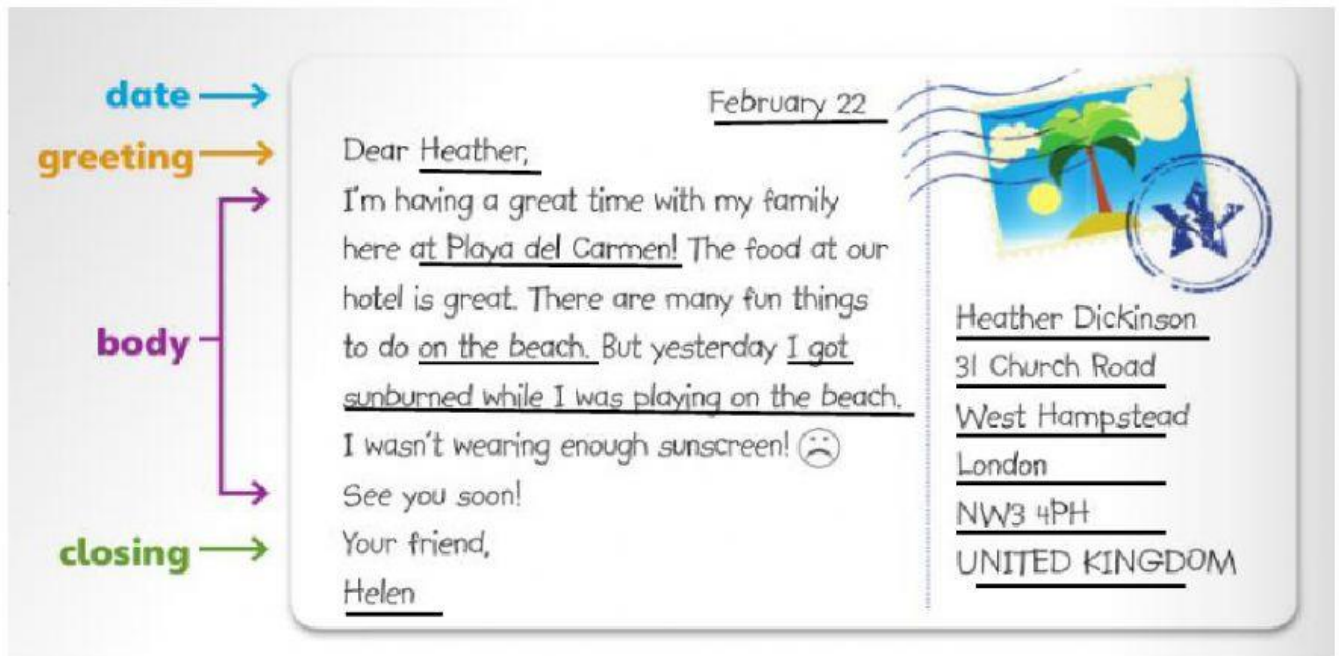 date
greeting
body
closing
February 22
Dear Heather,
I'm having a great time with my family
here at Playa del Carmen! The food at our
hotel is great. There are many fun things
to do on the beach. But yesterday I got
sunburned while I was playing on the beach.
I wasn't wearing enough sunscreen!
See you soon!
Your friend,
Helen
Heather Dickinson
31 Church Road
West Hampstead
London
NW3 4PH
UNITED KINGDOM